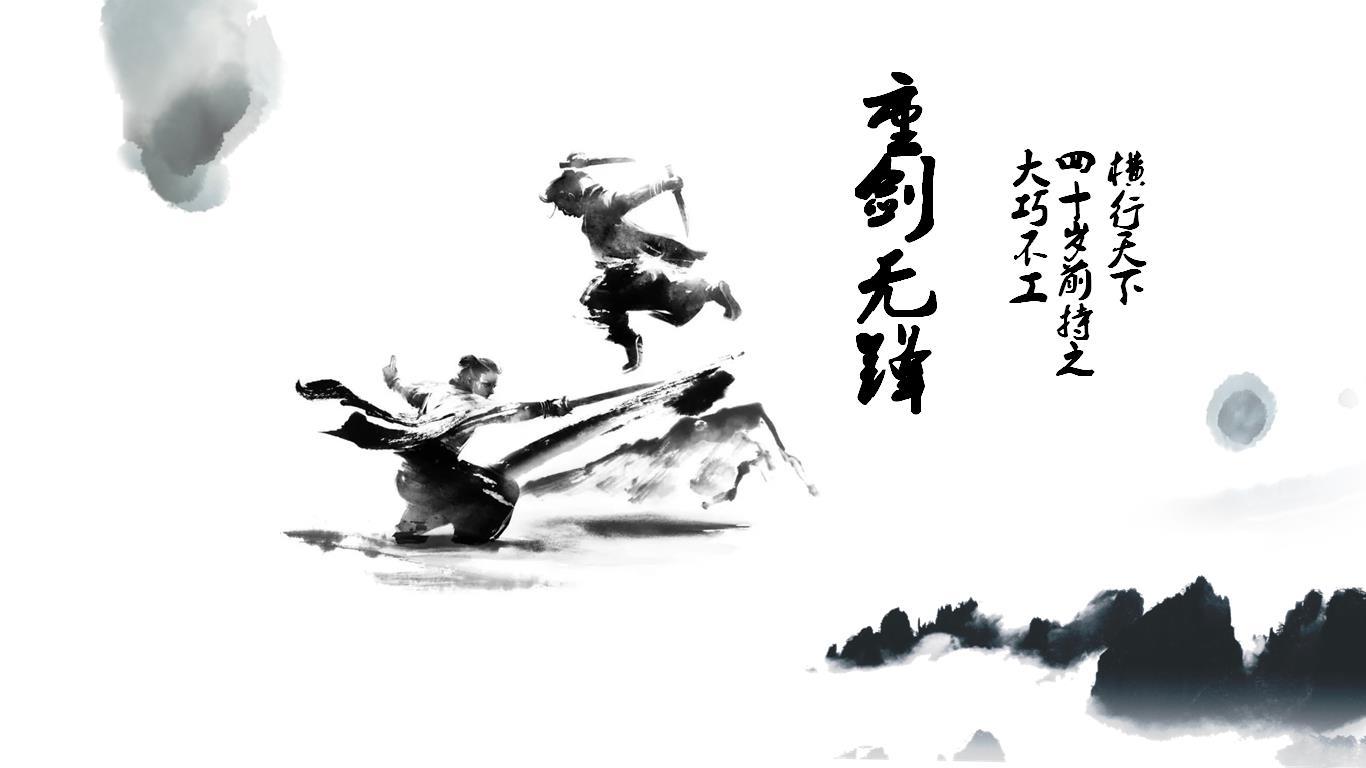 重剑无锋
大巧不工
四十岁前持之
横行天下